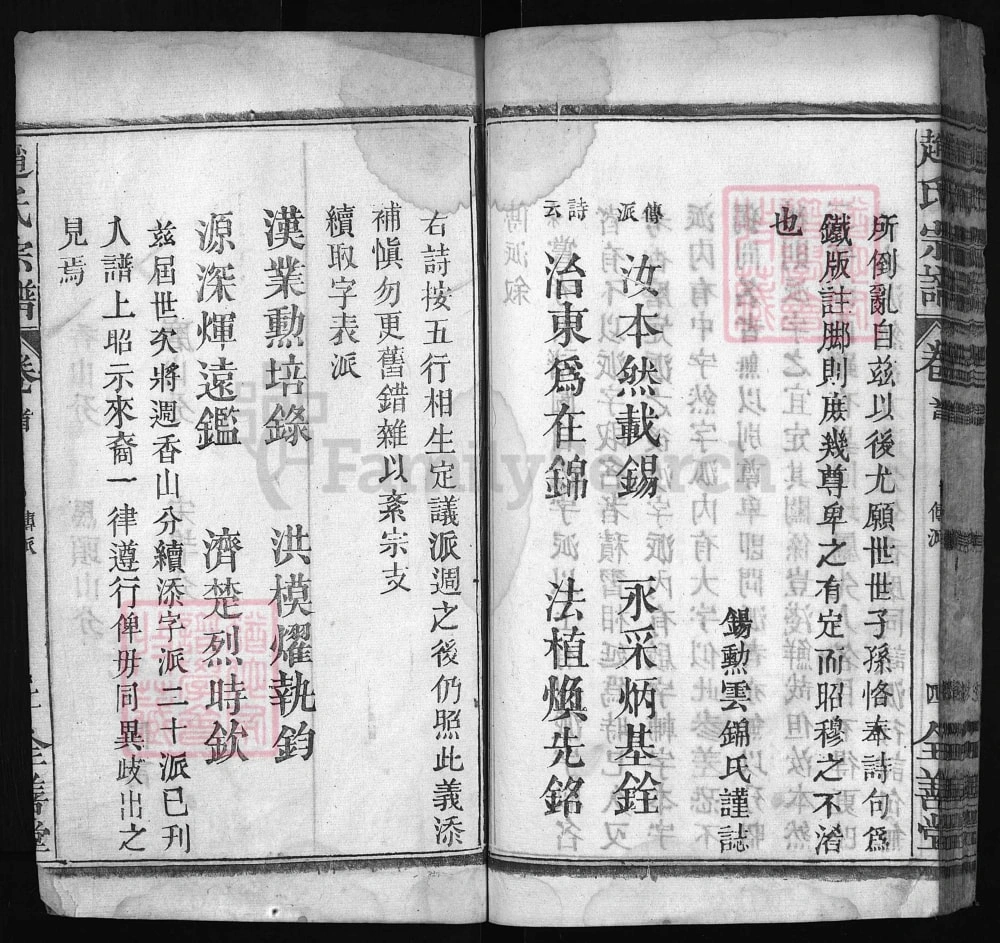 趙氏宗譜 卷首 傳派 四 全善堂
所倒亂自兹以後尤願世世子孫恪奉詩句爲
鐵版註脚則庶幾尊卑之有定而昭穆之不淆
也
錫勲雲錦氏謹誌
傳派
汝本然載錫 永采炳基銓
詩云
治東爲在錦 法植煥先銘
右詩按五行相生定議派週之後仍照此義添
補愼勿更舊錯雜以紊宗支
續取字表派
漢業勲培錄 洪模燿執鈞
源深煇遠鑑 濟楚烈時欽
兹屆世次將週香山分續添字派二十派已刋
入譜上昭示來裔一律遵行俾毋同異歧出之
見焉
趙氏宗譜 卷首 傳派 全善堂
FamilySearch